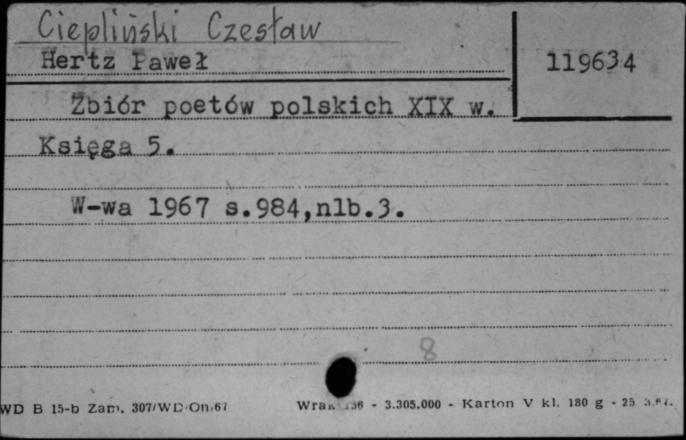 Ciepliński Czesław
Hertz Paweł
119634
Zbiór poetów polskich XIX w.
Księga 5.
W-wa 1967 s.984,nlb.3.
8
WD B 15-b Zam. 307/WD/On/67
- 3.305.000 - Karton V kl. 180 g - 25